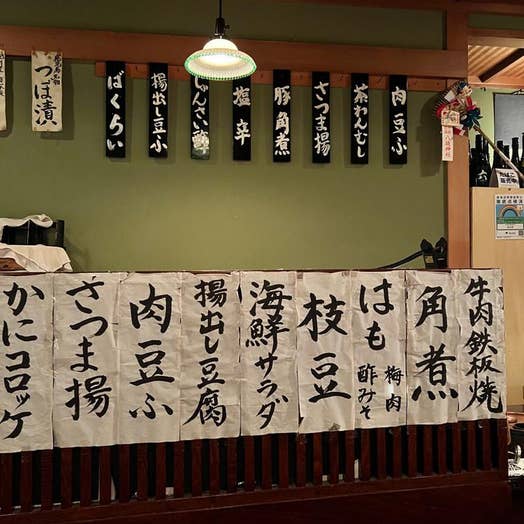 肉豆ふ
茶わんむし
さつま揚
豚角煮
塩辛
じゅんさい酢
揚出し豆ふ
ばくらい
つぼ漬
牛肉鉄板焼
角煮
はも 梅肉 酢みそ
枝豆
海鮮サラダ
揚出し豆腐
肉豆ふ
さつま揚
かにコロッケ